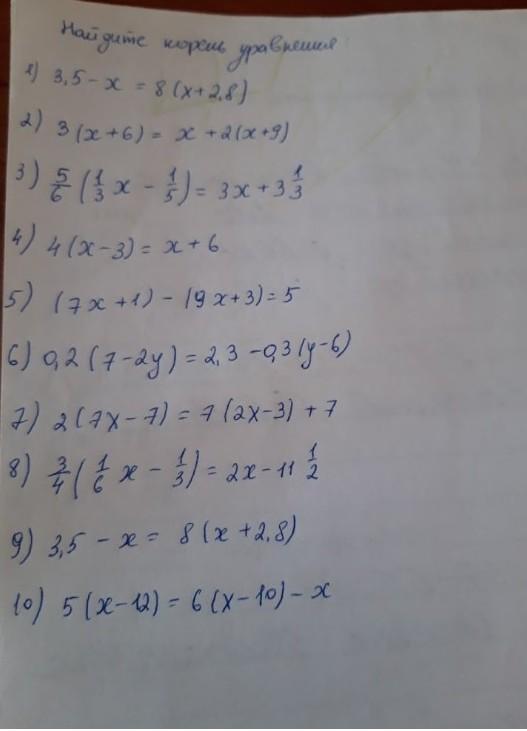 Найдите корень уравнения
1) 3,5 - x = 8(x+2,8)
2) 3(x+6) = x + 2(x+9)
3) 5/6 (1/3 x - 1/5) = 3x + 3 1/3
4) 4(x-3) = x + 6
5) (7x+1) - (9x+3) = 5
6) 0,2(7-2y) = 2,3 - 0,3(y-6)
7) 2(7x-7) = 7(2x-3) + 7
8) 3/4 (1/6 x - 1/3) = 2x - 11 1/2
9) 3,5 - x = 8(x+2,8)
10) 5(x-12) = 6(x-10) - x